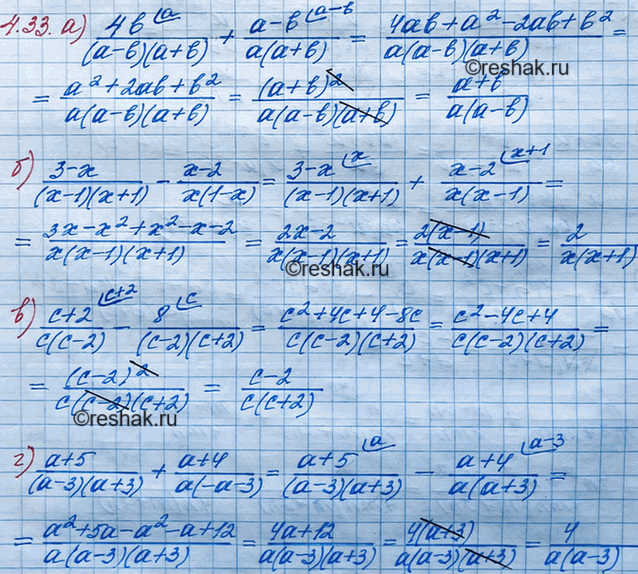 4.33. а) 4b⌞a / (a-b)(a+b) + a-b⌞a-b / a(a+b) = 4ab+a²-2ab+b² / a(a-b)(a+b) =
©reshak.ru
= a²+2ab+b² / a(a-b)(a+b) = (a+b)² / a(a-b)(a+b) = a+b / a(a-b)
б) 3-x / (x-1)(x+1) - x-2 / x(1-x) = 3-x⌞x / (x-1)(x+1) + x-2⌞x+1 / x(x-1) =
= 3x-x²+x²-x-2 / x(x-1)(x+1) = 2x-2 / x(x-1)(x+1) = 2(x-1) / x(x-1)(x+1) = 2 / x(x+1)
©reshak.ru
в) c+2⌞c+2 / c(c-2) - 8⌞c / (c-2)(c+2) = c²+4c+4-8c / c(c-2)(c+2) = c²-4c+4 / c(c-2)(c+2) =
= (c-2)² / c(c-2)(c+2) = c-2 / c(c+2)
©reshak.ru
г) a+5 / (a-3)(a+3) + a+4 / a(-a-3) = a+5⌞a / (a-3)(a+3) - a+4⌞a-3 / a(a+3) =
= a²+5a-a²-a+12 / a(a-3)(a+3) = 4a+12 / a(a-3)(a+3) = 4(a+3) / a(a-3)(a+3) = 4 / a(a-3)